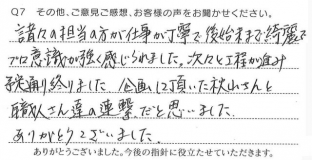 Q7 その他、ご意見ご感想、お客様の声をお聞かせください。
諸々の担当の方が仕事が丁寧で後始末まで綺麗で
プロ意識が強く感じられました。次々と工程が組み
予定通り終りました。企画して頂いた秋山さんと
職人さん達の連撃だと思いました。
ありがとうございました。
ありがとうございました。今後の指針に役立たせていただきます。